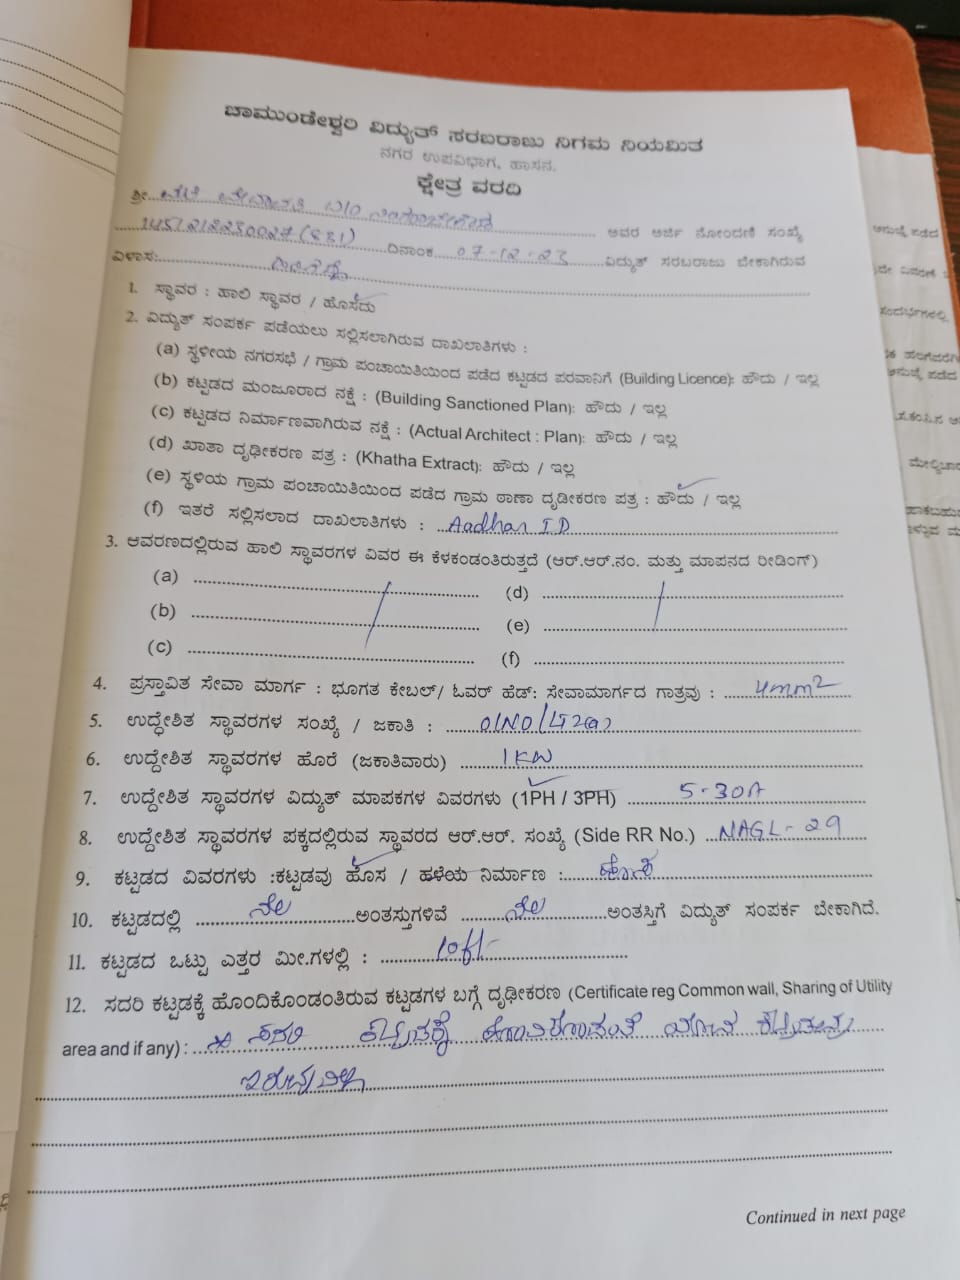 ಚಾಮುಂಡೇಶ್ವರಿ ವಿದ್ಯುತ್ ಸರಬರಾಜು ನಿಗಮ ನಿಯಮಿತ
ನಗರ ಉಪವಿಭಾಗ, ಹಾಸನ.
ಕ್ಷೇತ್ರ ವರದಿ
ಶ್ರೀ
ಅವರ ಅರ್ಜಿ ನೋಂದಣಿ ಸಂಖ್ಯೆ
ದಿನಾಂಕ 07-12-23 ವಿದ್ಯುತ್ ಸರಬರಾಜು ಬೇಕಾಗಿರುವ
ವಿಳಾಸ:
1. ಸ್ಥಾವರ : ಹಾಲಿ ಸ್ಥಾವರ / ಹೊಸದು
2. ವಿದ್ಯುತ್ ಸಂಪರ್ಕ ಪಡೆಯಲು ಸಲ್ಲಿಸಲಾಗಿರುವ ದಾಖಲಾತಿಗಳು :
(a) ಸ್ಥಳೀಯ ನಗರಸಭೆ / ಗ್ರಾಮ ಪಂಚಾಯಿತಿಯಿಂದ ಪಡೆದ ಕಟ್ಟಡದ ಪರವಾನಿಗೆ (Building Licence): ಹೌದು / ಇಲ್ಲ
(b) ಕಟ್ಟಡದ ಮಂಜೂರಾದ ನಕ್ಷೆ : (Building Sanctioned Plan): ಹೌದು / ಇಲ್ಲ
(c) ಕಟ್ಟಡದ ನಿರ್ಮಾಣವಾಗಿರುವ ನಕ್ಷೆ : (Actual Architect : Plan): ಹೌದು / ಇಲ್ಲ
(d) ಖಾತಾ ದೃಢೀಕರಣ ಪತ್ರ : (Khatha Extract): ಹೌದು / ಇಲ್ಲ
(e) ಸ್ಥಳಿಯ ಗ್ರಾಮ ಪಂಚಾಯಿತಿಯಿಂದ ಪಡೆದ ಗ್ರಾಮ ಠಾಣಾ ದೃಡೀಕರಣ ಪತ್ರ : ಹೌದು / ಇಲ್ಲ
(f) ಇತರೆ ಸಲ್ಲಿಸಲಾದ ದಾಖಲಾತಿಗಳು : Aadhar ID
3. ಆವರಣದಲ್ಲಿರುವ ಹಾಲಿ ಸ್ಥಾವರಗಳ ವಿವರ ಈ ಕೆಳಕಂಡಂತಿರುತ್ತದೆ (ಆರ್.ಆರ್.ನಂ. ಮತ್ತು ಮಾಪನದ ರೀಡಿಂಗ್)
(a) (d)
(b) (e)
(c) (f)
4. ಪ್ರಸ್ತಾವಿತ ಸೇವಾ ಮಾರ್ಗ : ಭೂಗತ ಕೇಬಲ್/ ಓವರ್ ಹೆಡ್: ಸೇವಾಮಾರ್ಗದ ಗಾತ್ರವು : 4mm2
5. ಉದ್ಧೇಶಿತ ಸ್ಥಾವರಗಳ ಸಂಖ್ಯೆ / ಜಕಾತಿ :
6. ಉದ್ದೇಶಿತ ಸ್ಥಾವರಗಳ ಹೊರೆ (ಜಕಾತಿವಾರು) 1KW
7. ಉದ್ದೇಶಿತ ಸ್ಥಾವರಗಳ ವಿದ್ಯುತ್ ಮಾಪಕಗಳ ವಿವರಗಳು (1PH / 3PH) 5-30A
8. ಉದ್ದೇಶಿತ ಸ್ಥಾವರಗಳ ಪಕ್ಕದಲ್ಲಿರುವ ಸ್ಥಾವರದ ಆರ್.ಆರ್. ಸಂಖ್ಯೆ (Side RR No.) NAGL-29
9. ಕಟ್ಟಡದ ವಿವರಗಳು :ಕಟ್ಟಡವು ಹೊಸ / ಹಳೆಯ ನಿರ್ಮಾಣ : ಹೊಸ
10. ಕಟ್ಟಡದಲ್ಲಿ ನೆಲ ಅಂತಸ್ತುಗಳಿವೆ ನೆಲ ಅಂತಸ್ತಿಗೆ ವಿದ್ಯುತ್ ಸಂಪರ್ಕ ಬೇಕಾಗಿದೆ.
11. ಕಟ್ಟಡದ ಒಟ್ಟು ಎತ್ತರ ಮೀ.ಗಳಲ್ಲಿ : 10ft-
12. ಸದರಿ ಕಟ್ಟಡಕ್ಕೆ ಹೊಂದಿಕೊಂಡಂತಿರುವ ಕಟ್ಟಡಗಳ ಬಗ್ಗೆ ದೃಢೀಕರಣ (Certificate reg Common wall, Sharing of Utility
area and if any) : ಸದರಿ ಕಟ್ಟಡಕ್ಕೆ ಹೊಂದಿಕೊಂಡಂತೆ ಯಾವ ಕಟ್ಟಡವು
ಇರುವುದಿಲ್ಲ
Continued in next page